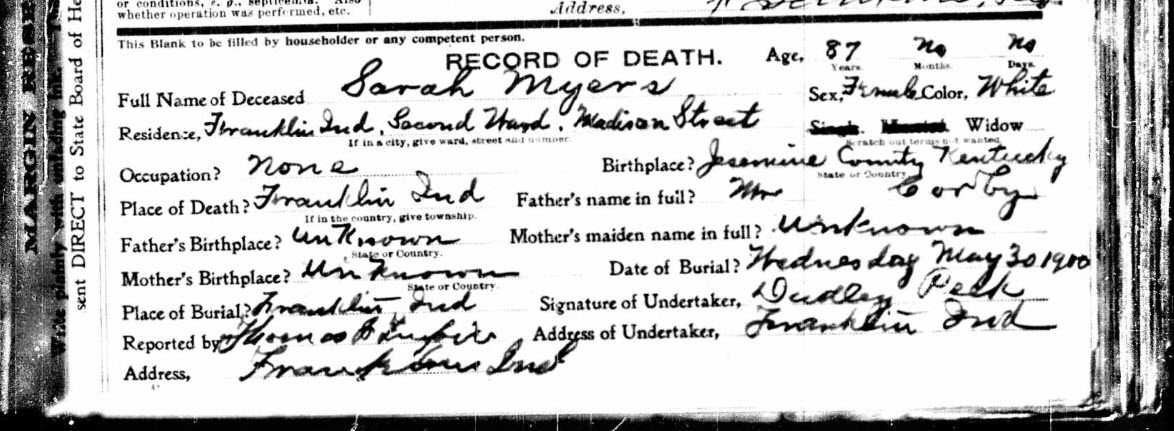 or conditions, e. g., septicemia. Also
whether operation was performed, etc.
Address,
This Blank to be filled by householder or any competent person.
RECORD OF DEATH. Age, 87 Years. No Months. No Days.
Full Name of Deceased Sarah Myers Sex, Female Color, White
Residence, Franklin Ind, Second Ward, Madison Street Single. Married. Widow
If in a city, give ward, street and number. Scratch out terms not wanted.
Occupation? None Birthplace? Jesemine County Kentucky
State or Country
Place of Death? Franklin Ind Father's name in full? Mr Corby
If in the country, give township.
Father's Birthplace? Unknown Mother's maiden name in full? Unknown
State or Country.
Mother's Birthplace? Unknown Date of Burial? Wednesday May 30 1900
State or Country.
Place of Burial? Franklin Ind Signature of Undertaker, Dudley Peek
Reported by Thomas Address of Undertaker, Franklin Ind
Address, Franklin Ind
MARGIN RESE
plainly with unfading ink
sent DIRECT to State Board of He